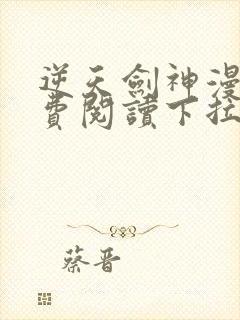 逆天劍神漫
費閱讀下拉
蔡晋